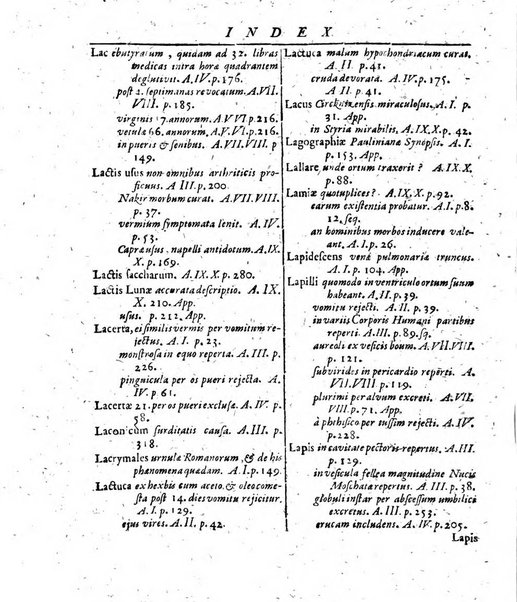 INDEX
Lac ebutyratum, quidam ad 32. libras
medicas intra horæ quadrantem
deglutivit. A. IV. p. 176.
post 2. septimanas revocatum. A. VII.
VIII. p. 185.
virginis 17. annorum. A. VI. p. 216.
vetulæ 66. annorum, A. V. p. 216.
in pueris & senibus. A. VII. VIII. p
149.
Lactis usus non omnibus arthriticis pro-
ficuus. A III. p. 200
Nakir morbum curat. A. VII. VIII.
p. 37.
vermium symptomata lenit. A. IV.
p. 53.
Capræ usus. napelli antidotum. A. IX.
X. p. 169.
Lactis saccharum. A. IX. X. p. 280.
Lactis Lunæ accurata descriptio. A. IX
X. 210. App.
usus. p. 212. App.
Lacerta, ei similis vermis per vomitum re-
jectus. A. I. p. 23.
monstrosa in equo reperta. A. III. p.
226.
pinguicula per os pueri rejecta. A.
IV. p. 61.
Lacertæ 21. per os pueri exclusæ. A. IV. p.
58.
Laconicum surditatis causa. A. III. p.
318.
Lacrymales urnulæ Romanorum, & de his
phænomena quædam. A. I. p. 149.
Lactuca ex hexbis cum aceto, & oleo come-
sta post 14. dies vomitu rejicitur.
A. I. p. 129.
ejus vires. A. II. p. 42.
Lactuca malum hypochondriacum curat.
A. II. p. 41.
cruda devorata. A. IV. p. 175.
Lacus Circknizensis miraculosus. A. I. p.
31. App.
in Styria mirabilis. A. IX. X. p. 42.
Lagographiæ Paulinianæ Synopsis. A. I.
p. 153. App.
Lallare, unde ortum traxerit? A. IX. X.
p. 88.
Lamiæ quotuplices? A. IX. X. p. 92.
earum existentia probatur. A. I. p. 8.
12. seq.
an hominibus morbos inducere vale-
ant. A. I. p. 26.
Lapidescens venæ pulmonariæ truncus.
A. I. p. 104. App.
Lapilli quomodo in ventriculo ortum suum
habeant. A. II. p. 39.
vomitu rejecti. A. II. p. 39.
in variis Corporis Humani partibus
reperti. A. III. p. 89. sq.
aureoli ex vesicis boum. A. VII. VIII.
p. 121.
subvirides in pericardio reperti. A.
VII. VIII. p. 119.
plurimi per alvum excreti. A. VII.
VIII. p. 71. App.
à phthisico per tussim rejecti. A. IV.
p. 228.
Lapis in cavitate pectoris repertus. A. III.
p. 129.
in vesicula fellea magnitudine Nucis
Moschatæ repertus. A. III. p. 38.
globuli instar per abscessum umbilici
excretus. A. III. p. 253.
erucam includens. A. IV. p. 205.
Lapis